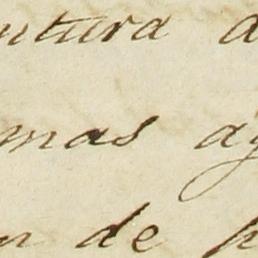 utura a
mas ay
n de p